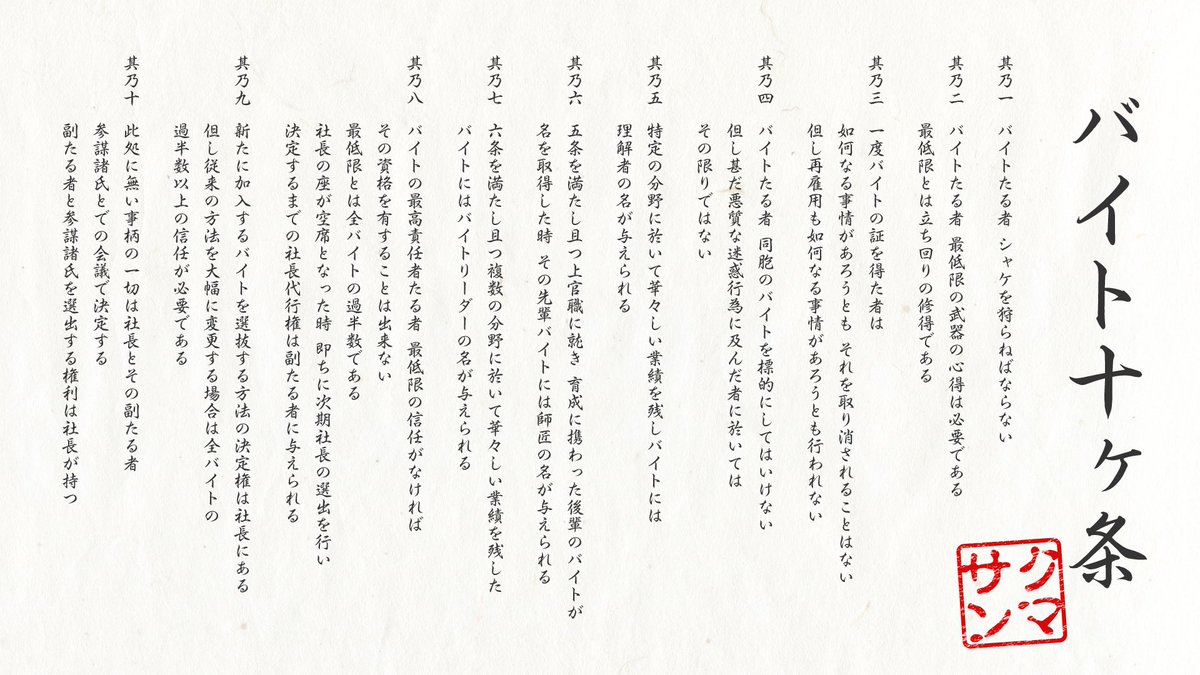 バイト十ケ条
クマ
サン
其乃一 バイトたる者 シャケを狩らねばならない
其乃二 バイトたる者 最低限の武器の心得は必要である
最低限とは立ち回りの修得である
其乃三 一度バイトの証を得た者は
如何なる事情があろうとも それを取り消されることはない
但し再雇用も如何なる事情があろうとも行われない
其乃四 バイトたる者 同胞のバイトを標的にしてはいけない
但し甚だ悪質な迷惑行為に及んだ者に於いては
その限りではない
其乃五 特定の分野に於いて華々しい業績を残しバイトには
理解者の名が与えられる
其乃六 五条を満たし且つ上官職に就き 育成に携わった後輩のバイトが
名を取得した時 その先輩バイトには師匠の名が与えられる
其乃七 六条を満たし且つ複数の分野に於いて華々しい業績を残した
バイトにはバイトリーダーの名が与えられる
其乃八 バイトの最高責任者たる者 最低限の信任がなければ
その資格を有することは出来ない
最低限とは全バイトの過半数である
社長の座が空席となった時 即ちに次期社長の選出を行い
決定するまでの社長代行権は副たる者に与えられる
其乃九 新たに加入するバイトを選抜する方法の決定権は社長にある
但し従来の方法を大幅に変更する場合は全バイトの
過半数以上の信任が必要である
其乃十 此処に無い事柄の一切は社長とその副たる者
参謀諸氏とでの会議で決定する
副たる者と参謀諸氏を選出する権利は社長が持つ